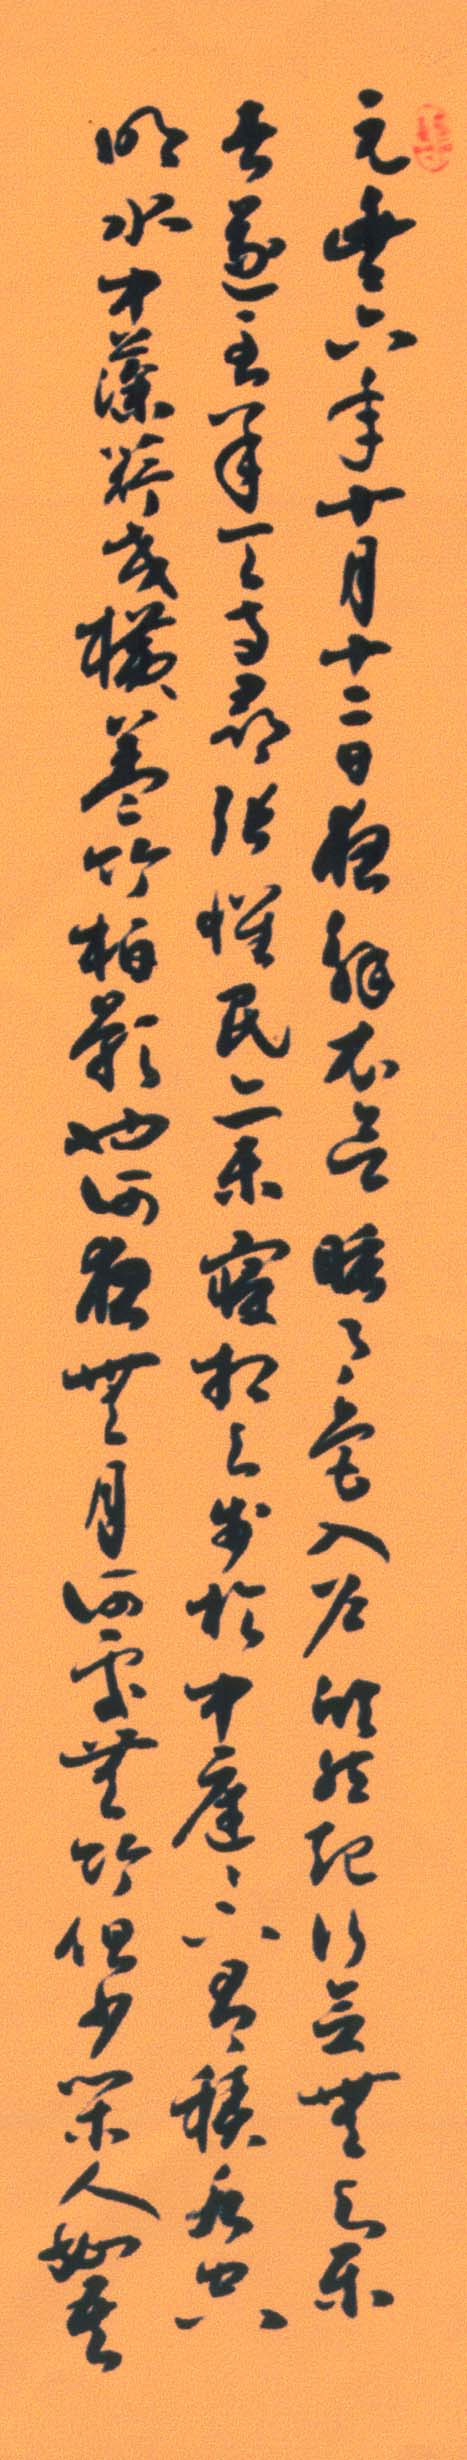 元豐六年十月十二日夜解衣欲睡月色入戶欣然起行念無与樂
者遂至承天寺尋張懷民亦未寢相与步於中庭〻下如積水空
明水中藻荇交橫蓋竹柏影也何夜無月何處無竹但少閑人如吾